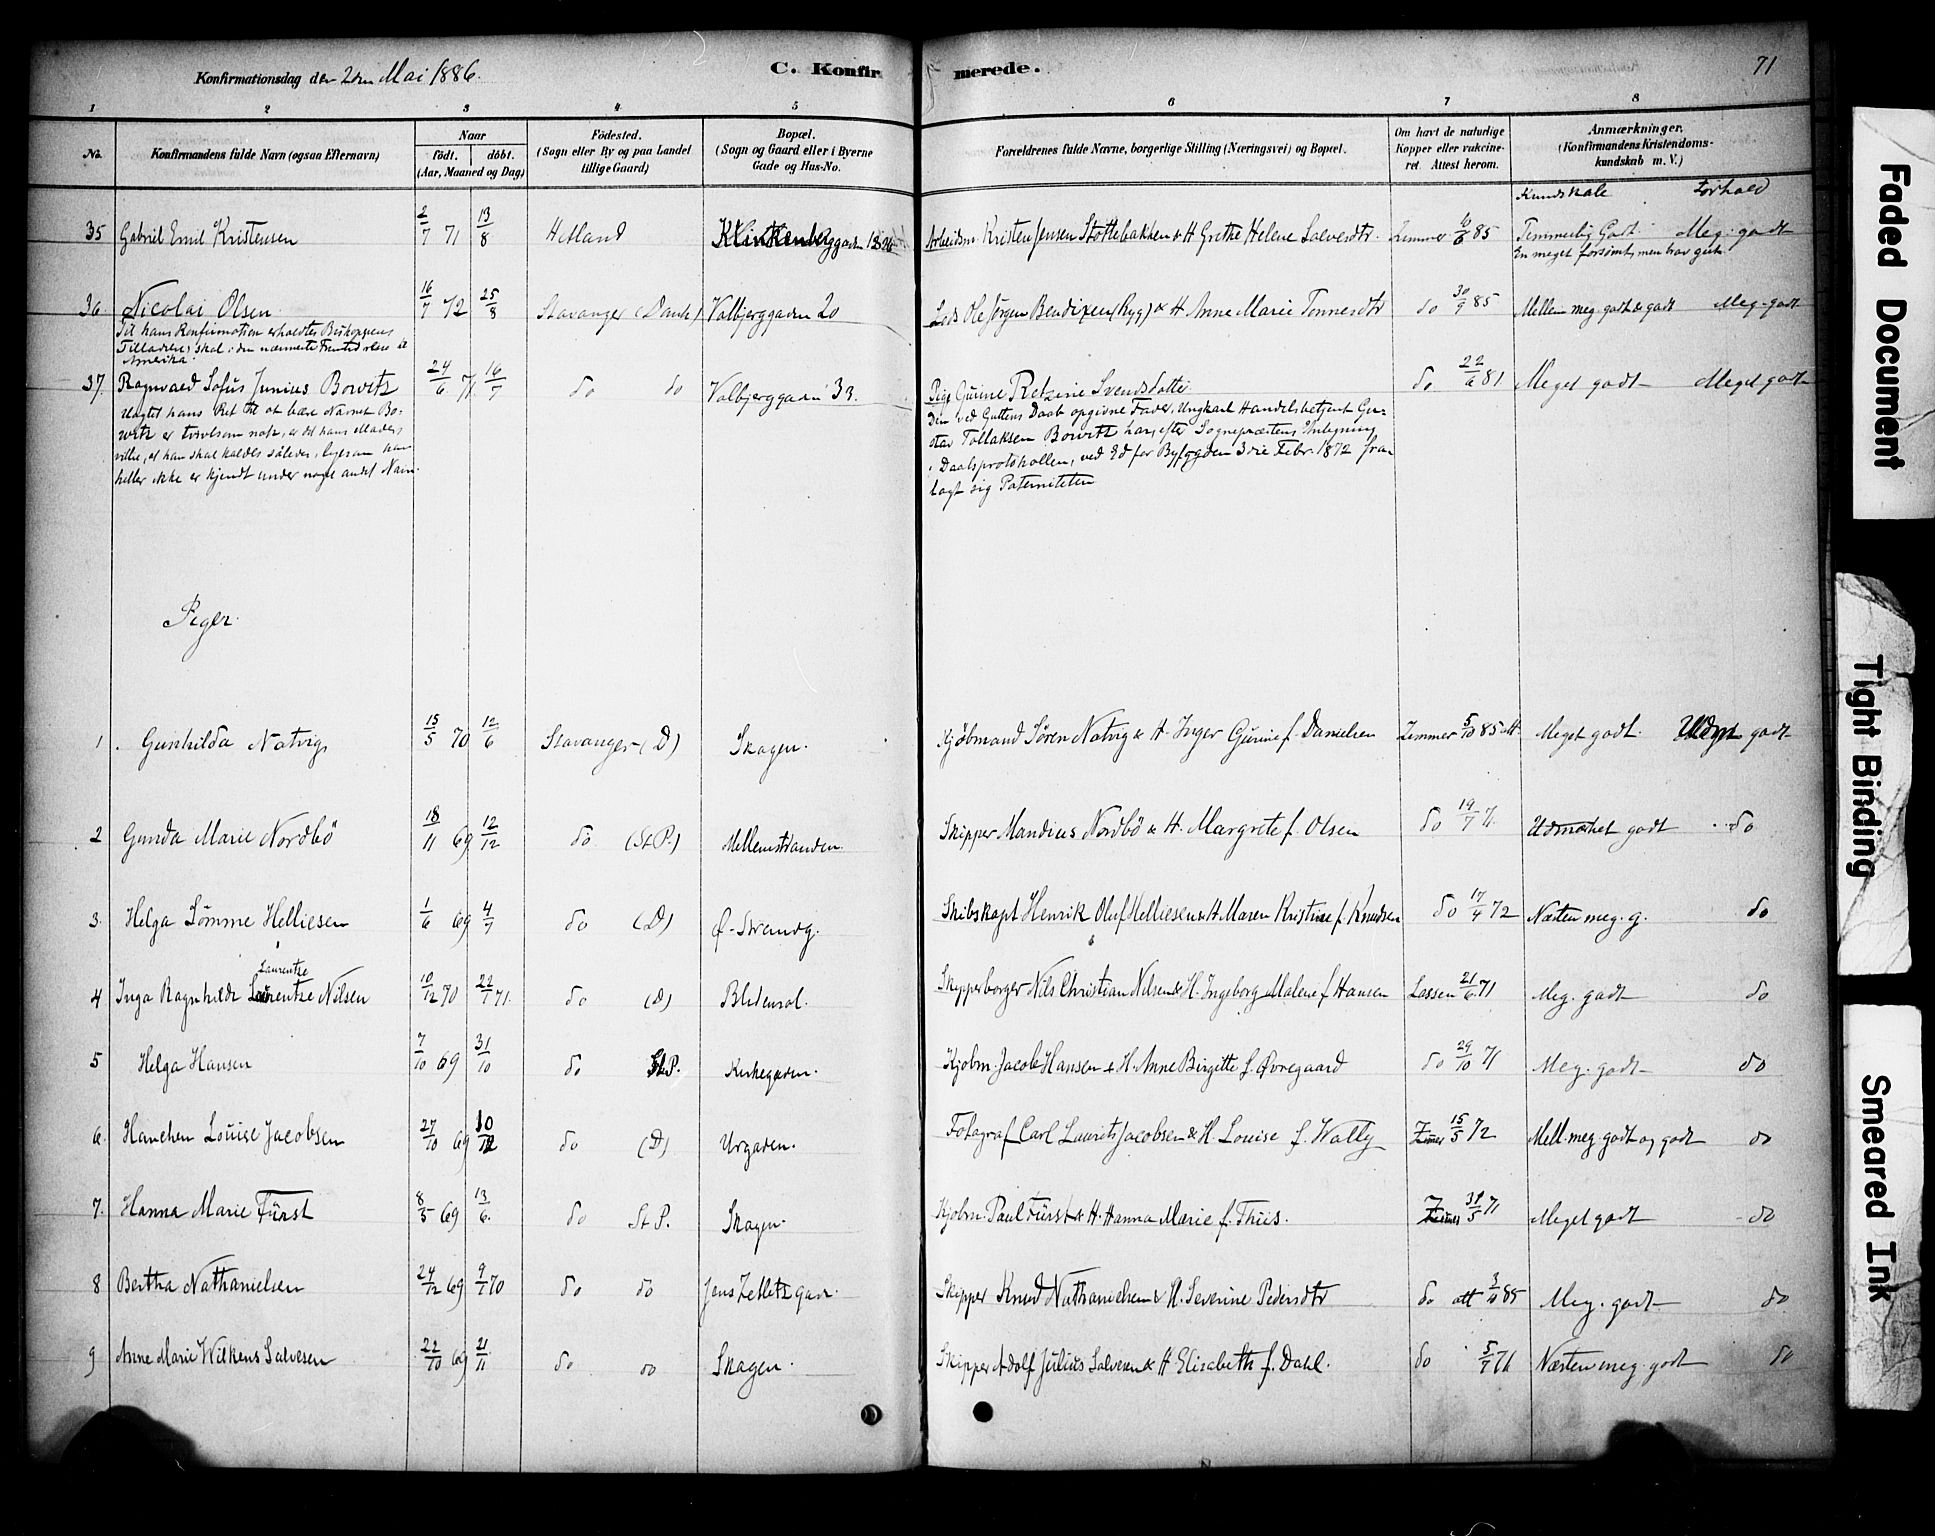 Konfirmationsdag den 2den Mai 1886.
C. Konfirmerede.
71
1 2 3 4 5 6 7 8
No.
Konfirmandens fulde Navn (ogsaa Efternavn)
Naar
født. døbt.
(Aar, Maaned og Dag)
Fødested.
(Sogn eller By og paa Landet
tillige Gaard)
Bopæl.
(Sogn og Gaard eller i Byerne
Gade og Hus-No.
Forældrenes fulde Navne, borgerlige Stilling (Næringsvei) og Bopæl.
Om havt de naturlige
Kopper eller vakcine-
ret. Attest herom.
Anmærkninger.
(Konfirmandens Kristendoms-
kundskab m. V.)
Kundskab Forhold
35 Gabriel Emil Kristensen 2/7 71 13/8 Hetland Klinkenberggaden Arbeidsm. Kristen Jensen Stottebakken & H. Grethe Helene Salvesdtr. Zimmer 6/6 85 Temmelig Godt. Meg. godt
En meget forsømt, men brav gut.
36 Nicolai Olsen 16/7 72 25/8 Stavanger (Domk) Valbjerggaden 20 Lods Ole Jørgen Bendixen (Ryg) & H. Anne Marie Tønnesdtr do 30/9 85 Mellem meg. godt & godt Meg. godt
Til hans Konfirmation erholdtes Biskoppens
Tilladelse, skal i den nærmeste Fremtid reise til
Amerika.
37. Ragnvald Sofus Junius Bowitz 24/6 71. 16/7 do do Valbjerggaden 33. Pige Gurine Retzine Svendsdatter. do 22/6 81 Meget godt Meget godt
uagtet hans Ret til at bære Navnet Bo-
witz er tvivlsom nok, er det hans Moders
villie, at han skal kaldes således, ligesom han
heller ikke er kjendt under noget andet Navn.
Den ved Guttens Daab opgivne Fader, Ungkarl Handelsbetjent Gu-
stav Tollaksen Bowitz har, efter Sognepræstens Antegning
i Daabsprotokollen, ved Ed for Byfogden 3die Febr. 1872 fra-
lagt sig Paterniteten
Piger.
1 Gunhilda Natvig 15/5 70 12/6 Stavanger (D) Skagen. Kjøbmand Søren Natvig & H. Inger Gurine f. Danielsen Zimmer 5/10 85 att. Meget godt. Udm godt
2 Gunda Marie Nordbö 18/11 69 12/12 do (St P.) Mellemstranden. Skipper Mandius Nordbö & H. Margrete f. Olsen do 19/7 71. Udmærket godt do
3. Helga Sömme Helliesen 1/6 69 4/7 do (D) Ø-Strandg. Skibskapt Henrik Oluf Helliesen & H. Maren Kristine f. Knudsen do 17/4 72 Næsten meg. g. do
4 Inga Ragnhilda Laurentze Nilsen 10/12 70 22/1 71. do (D) Blidensol. Skipperborger Nils Christian Nilsen & H. Ingeborg Malene f. Hansen Lassen 21/6 71 Meg. godt do
Laurentze
5 Helga Hansen 7/10 69 31/10 do St P. Kirkegaden. Kjøbm. Jacob Hansen & H. Anne Birgitte f. Øvregaard do 29/10 71 Meg. godt do
6. Hanchen Louise Jacobsen 27/10 69 10/12 do (D) Urgaden. Fotograf Carl Laurits Jacobsen & H. Louise f. Wally Zimer 15/5 72 Mell. meg. godt og godt do
7. Hanna Marie Fürst 8/5 69 13/6. do St P. Skagen. Kjøbm. Paul Fürst & H. Hanna Marie f. Thiis. Zimer 31/5 71 Meget godt do
8 Bertha Nathanielsen 24/12 69 9/1 70 do do Jens Zetlitz gade. Skipper Knud Nathanielsen & H. Severine Pedersdtr do att 3/10 85 Meg. godt do
9 Anne Marie Wilkens Salvesen 22/10 69 21/11 do do Skagen. Skipper Adolf Julius Salvesen & H. Elisabeth f. Dahl. do 5/7 71 Næsten meg. godt do
Faded Document
Tight Binding
Smeared Ink